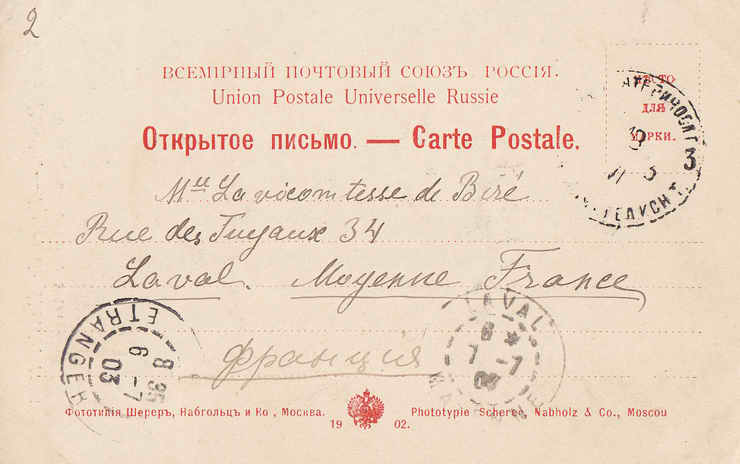 2
ВСЕМІРНЫЙ ПОЧТОВЫЙ СОЮЗЪ. РОССІЯ.
Union Postale Universelle Russie
Открытое письмо. — Carte Postale.
МѢСТО
ДЛЯ
МАРКИ.
3
Mlle La vicomtesse de Biré
Rue des Tuyaux 34
Laval. Mayenne France
Франція
ETRANGER
8 35
6 - 7
03
LAVAL
6 *
7 - 7
03
Фототипія Шереръ, Набгольцъ и Ко, Москва.
Phototypie Scherer, Nabholz & Co., Moscou
19 02.